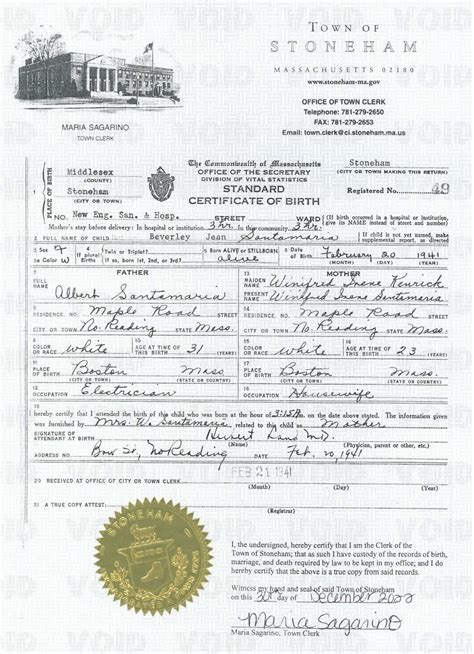 TOWN OF
STONEHAM
MASSACHUSETTS 02180
www.stoneham-ma.gov
OFFICE OF TOWN CLERK
Telephone: 781-279-2650
FAX: 781-279-2653
Email: town.clerk@ci.stoneham.ma.us
MARIA SAGARINO
TOWN CLERK
PLACE OF BIRTH
Middlesex
(COUNTY)
Stoneham
(CITY OR TOWN)
The Commonwealth of Massachusetts
OFFICE OF THE SECRETARY
DIVISION OF VITAL STATISTICS
STANDARD
CERTIFICATE OF BIRTH
Stoneham
(CITY OR TOWN MAKING THIS RETURN)
Registered No. 49
NO. New Eng. San. & Hosp. STREET WARD
(If birth occurred in a hospital or institution, give its NAME instead of street and number)
Mother's stay before delivery: In hospital or institution 3 hr. In this community 3 hr.
2 FULL NAME OF CHILD Beverley Jean Santamaria
(If child is not yet named, make supplemental report, as directed
3 Sex F
Color W
4 (If plural) Births
Twin or Triplet?
If so, born 1st, 2nd, or 3rd?
5 Born ALIVE or STILLBORN
alive
6 Date of Birth February 20 1941
(Month) (Day) (Year)
FATHER
7 FULL NAME
Albert Santamaria
8 RESIDENCE, NO. Maple Road STREET
CITY OR TOWN No. Reading STATE Mass.
9 COLOR OR RACE white
10 AGE AT TIME OF THIS BIRTH 31 (YEARS)
11 PLACE OF BIRTH Boston Mass
(CITY OR TOWN) (STATE OR COUNTRY)
12 OCCUPATION Electrician
MOTHER
13 MAIDEN NAME Winifred Irene Kenrick
PRESENT NAME Winifred Irene Santamaria
14 RESIDENCE, NO. Maple Road STREET
CITY OR TOWN No. Reading STATE Mass.
15 COLOR OR RACE white
16 AGE AT TIME OF THIS BIRTH 23 (YEARS)
17 PLACE OF BIRTH Boston Mass.
(CITY OR TOWN) (STATE OR COUNTRY)
18 OCCUPATION Housewife
19
I hereby certify that I attended the birth of this child who was born at the hour of 3:15A m. on the date above stated. The information given
was furnished by Mrs. W. Santamaria, related to this child as Mother
SIGNATURE OF ATTENDANT AT BIRTH
M.D.
(Physician, parent or other, etc.)
ADDRESS NO. Bow St., No Reading Date Feb. 20, 1941
20 RECEIVED AT OFFICE OF CITY OR TOWN CLERK FEB 21 1941
(Month) (Day) (Year)
21 A TRUE COPY ATTEST:
(Registrar)
STONEHAM
I, the undersigned, hereby certify that I am the Clerk of the
Town of Stoneham; that as such I have custody of the records of birth,
marriage, and death required by law to be kept in my office; and I do
hereby certify that the above is a true copy from said records.
Witness my hand and seal of said Town of Stoneham
on this 30th day of December 2002
Maria Sagarino
Maria Sagarino, Town Clerk
VOID